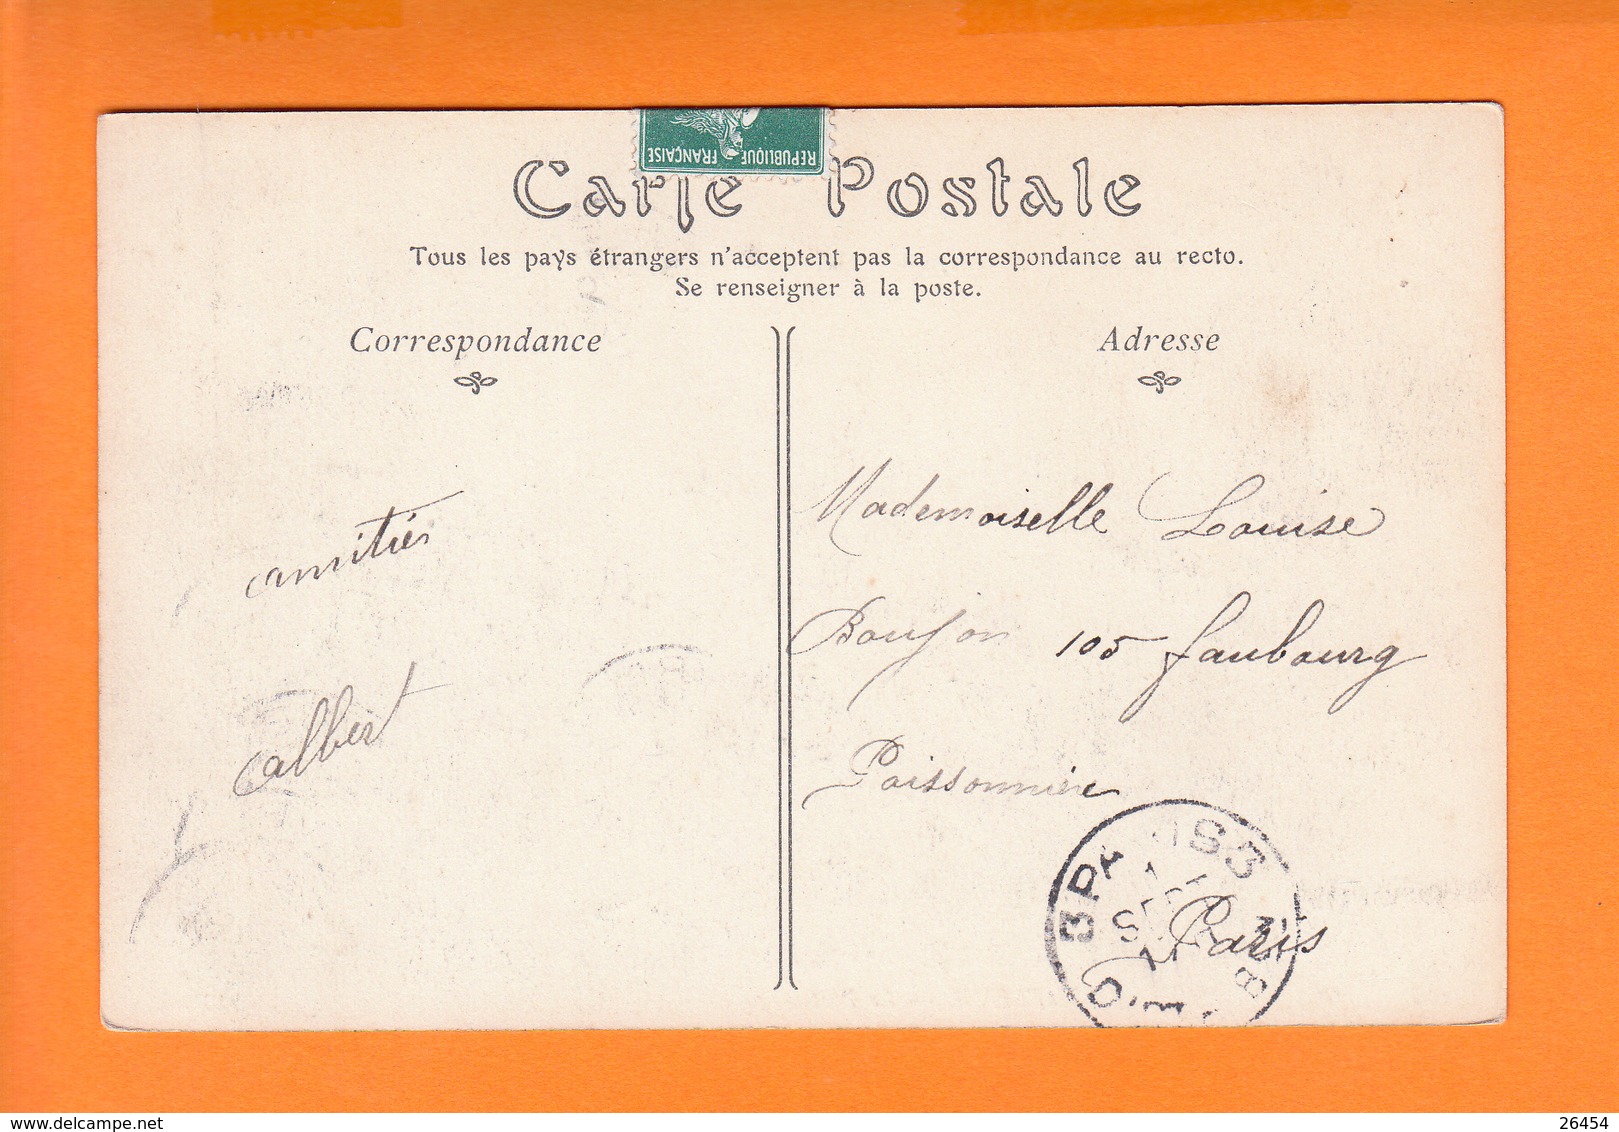 REPUBLIQUE FRANÇAISE
Carte Postale
Tous les pays étrangers n'acceptent pas la correspondance au recto.
Se renseigner à la poste.
Correspondance
Adresse
amitiés
Albert
Mademoiselle Louise
Boujon 105 faubourg
Poissonnière
Paris
PARIS
delcampe.net
26454